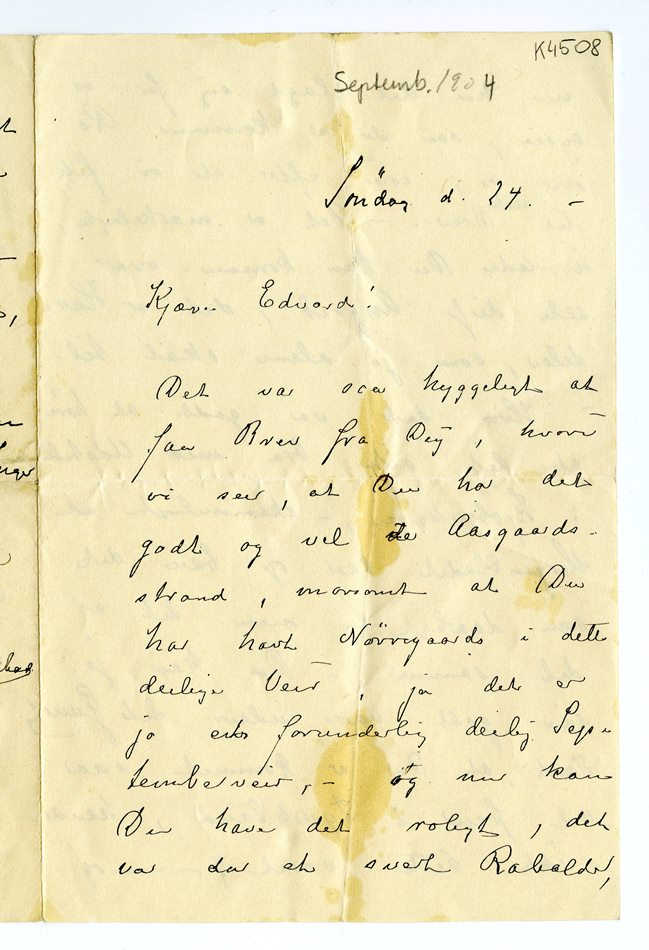 K4508
Septemb. 1904
Söndag d. 24. –
Kjære Edvard!
Det var saa hyggeligt at
faa Brev fra Dig, hvori
vi seer, at Du har det
godt og vel Aasgaards-
strand, morsomt at Du
har havt Nørregaards i dette
deilige Veir, ja det er
jo forunderlig deilig Sep-
temberveir, – og nu kan
Du have det roligt, det
var da et svert Rabalder,